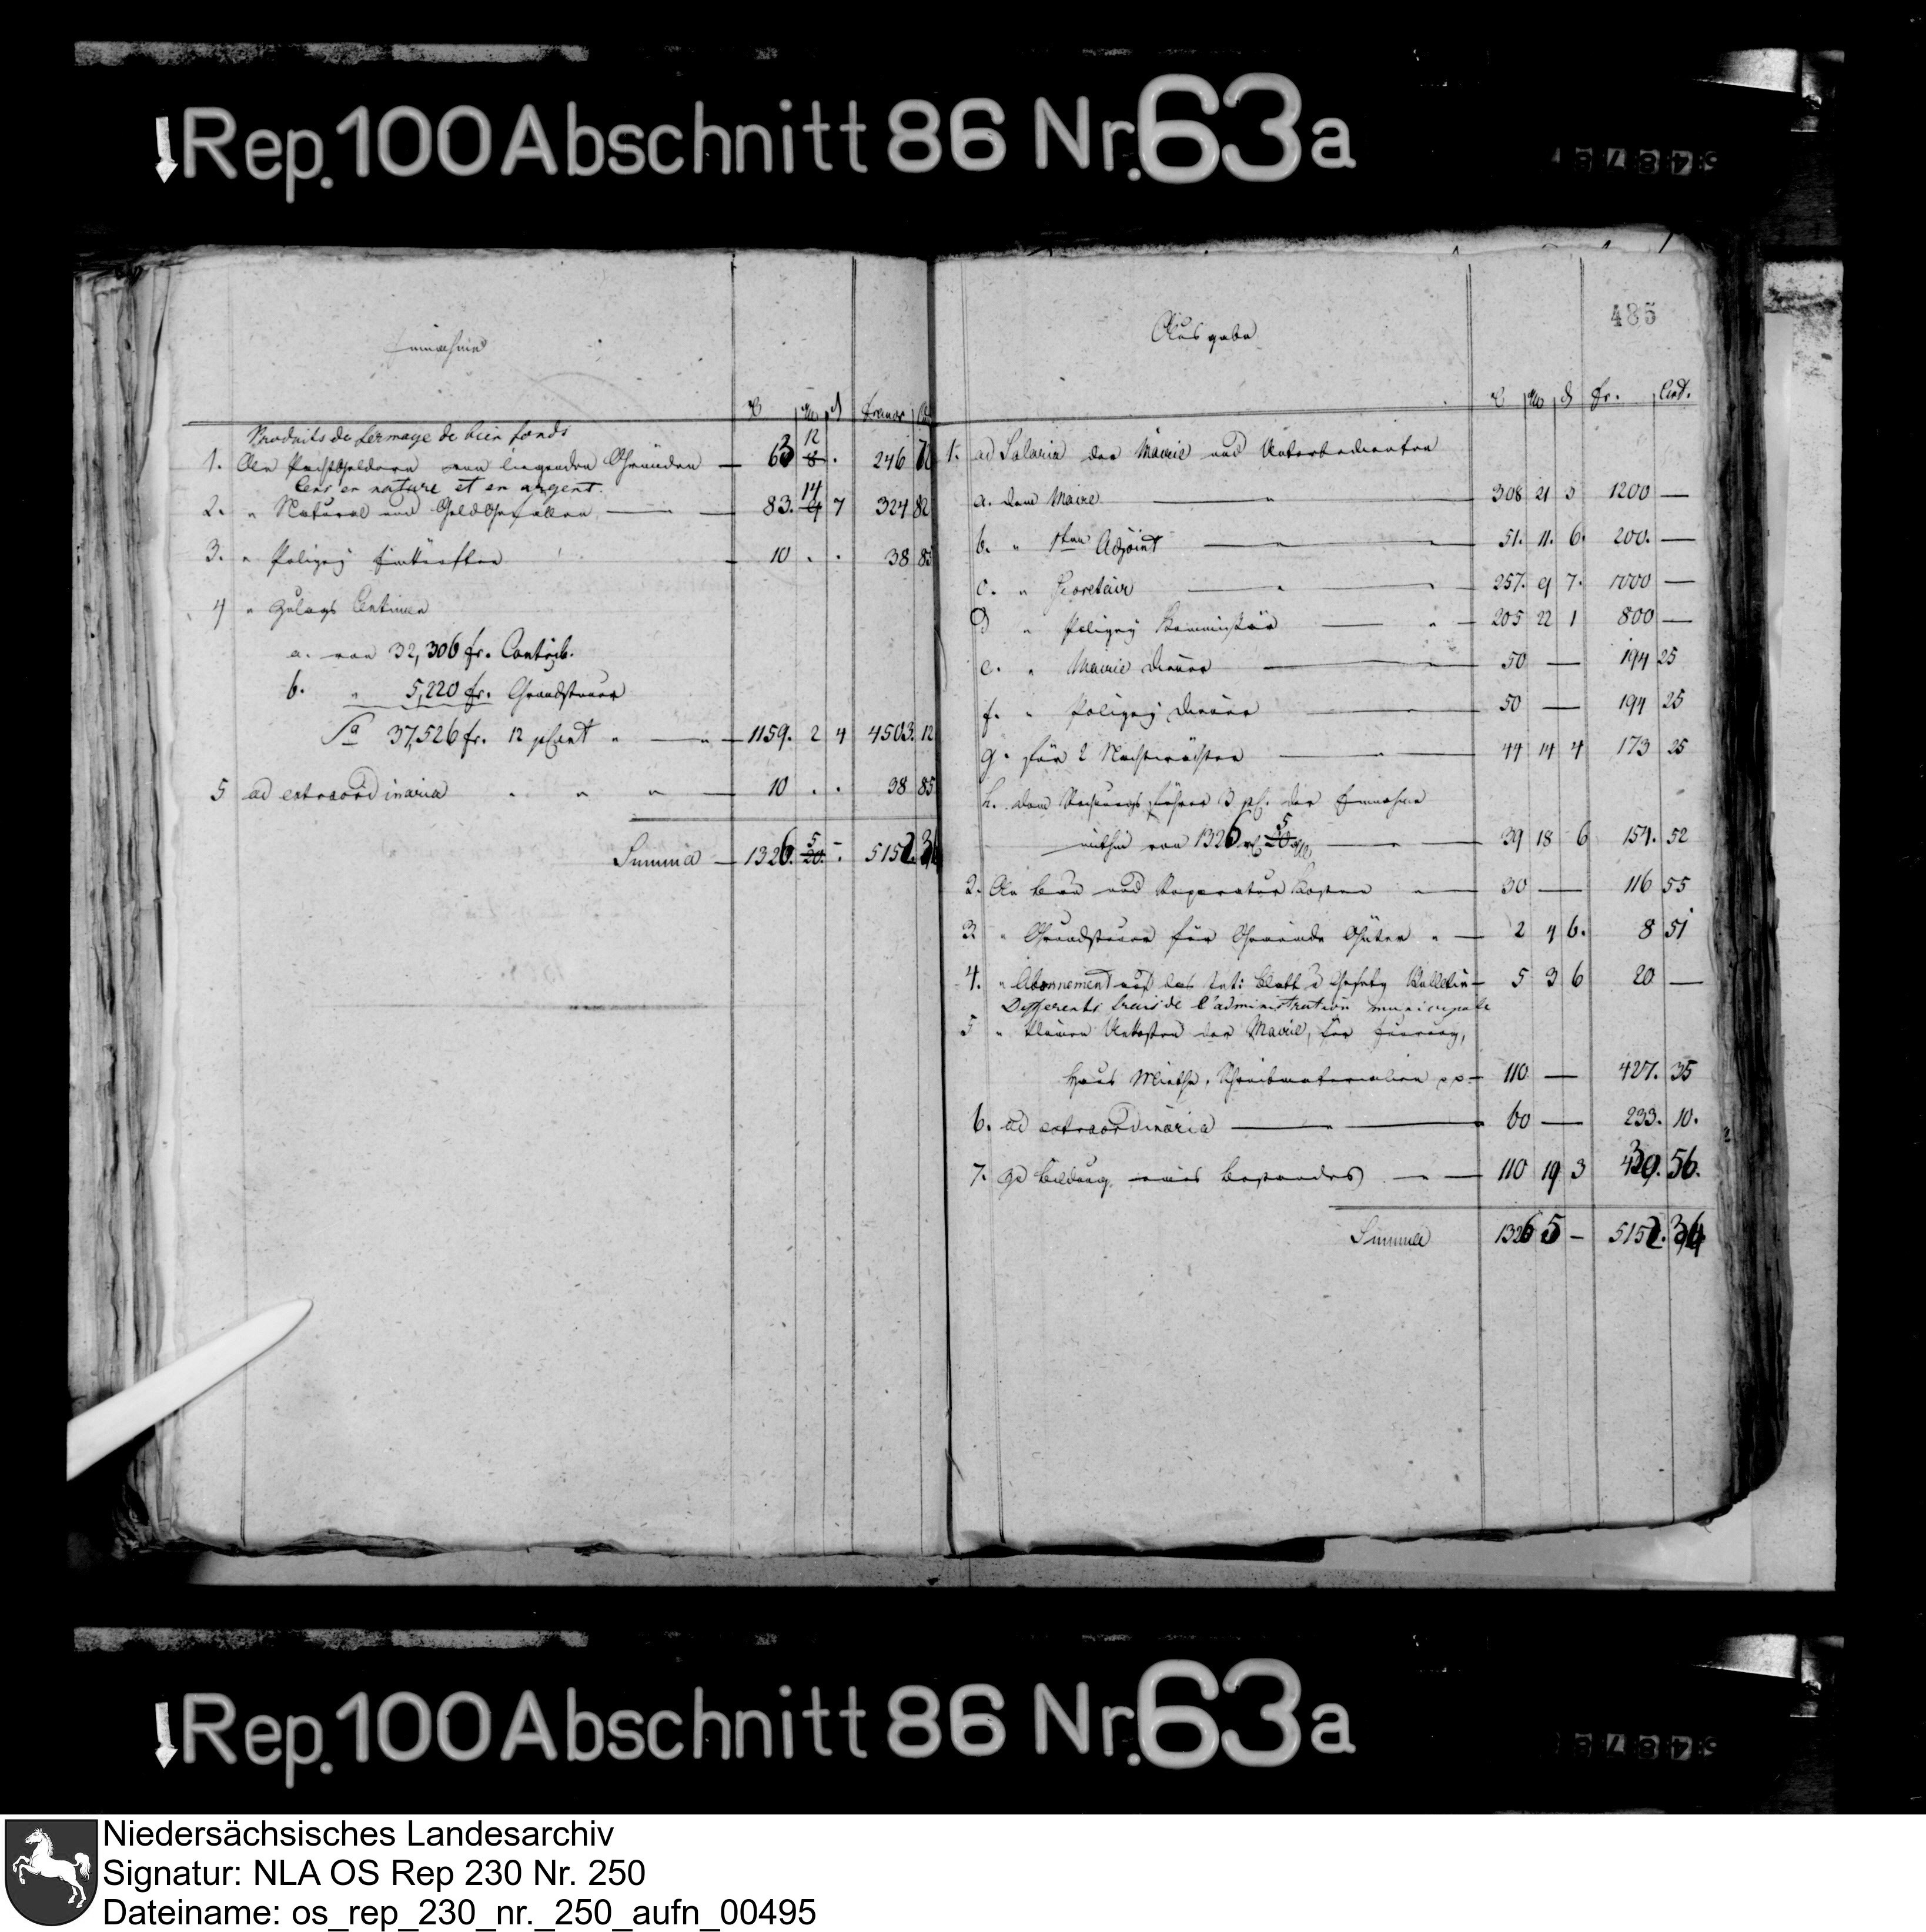 Rep. 100 Abschnitt 86 Nr. 63a
Einnahme
rℓ gg d Francs Ct
Produits de fermage de bien fonds
1. An Pachtgeldern von liegenden Gründen — 63 12 . 246
Cens en nature et en argent.
2. " Natural und Geldgefällen — 83. 14 7 324 82
3. " Polizey Einkünften — 10 . . 38 85
4 " Zulags Centimen
a. von 32,306 fr. Contrib.
b. " 5,220 fr. Grundsteuer
Sa 37,526 fr. 12 pCent " — " — 1159. 2 4 4503. 12
5 ad extraordinaria " " " — 10 . . 38 85
Summa — 1326. 5 - 5152.
485
Ausgabe
rℓ gg d fr. Cent.
1. ad Salaria der Mairie und Unterbedienten
a. dem Maire — " — 308 21 5 1200 —
b. " 1ten Adjoint — " — 51. 11. 6. 200. —
c. " Secretair — " — 257. 9 7. 1000 —
d " Polizey Kommissär — " — 205 22 1 800 —
e. " Mairie Diener — 50 — 194 25
f. " Polizey Diener — 50 — 194 25
g. für 2 Nachtwächter — 44 14 4 173 25
h. dem Rechnungsführer 3 pC. der Einnahme
mithin von 1326 rℓ 5 gg — 39 18 6 154. 52
2. An Bau und Reparatur Kosten " — 30 — 116 55
3 " Grundsteuer für Gemeinde Güter " — 2 4 6. 8 51
4. " Abonnement auf das Int: Blatt & Gesetz Bulletin — 5 3 6 20 —
Differents frais de l'administration municipale
5 " kleinen Unkosten der Mairie, für Feuerung,
Haus Miethe, Schreibmaterialien pp — 110 — 427. 35
6. ad extraordinaria — " — 60 — 233. 10.
7. Zu Bildung eines Bestandes — 110 19 3 430. 56.
Summa 1326 5 - 5152. 34
Rep. 100 Abschnitt 86 Nr. 63a
Niedersächsisches Landesarchiv
Signatur: NLA OS Rep 230 Nr. 250
Dateiname: os_rep_230_nr._250_aufn_00495